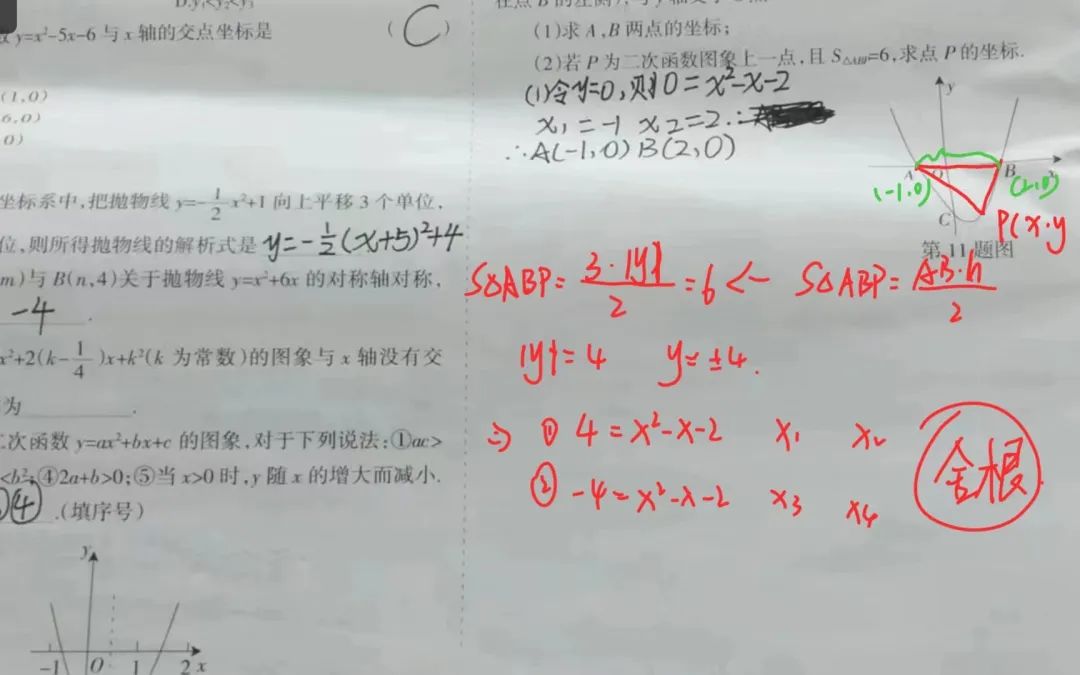 D.y₁<y₂<y₃
数 y=x²-5x-6 与 x 轴的交点坐标是 ( C )
(1,0)
6,0)
0)
坐标系中,把抛物线 y=-1/2x²+1 向上平移 3 个单位,
位,则所得抛物线的解析式是 y=-1/2(x+5)²+4
m)与 B(n,4)关于抛物线 y=x²+6x 的对称轴对称,
-4 .
x²+2(k-1/4)x+k²(k 为常数)的图象与 x 轴没有交
为 .
二次函数 y=ax²+bx+c 的图象,对于下列说法:①ac>
<b²;④2a+b>0;⑤当 x>0 时,y 随 x 的增大而减小.
④ .(填序号)
y
-1 O 1 2 x
(1)求 A,B 两点的坐标;
(2)若 P 为二次函数图象上一点,且 S△ABP=6,求点 P 的坐标.
(1)令y=0,则0=x²-x-2
x₁=-1 x₂=2.
∴A(-1,0) B(2,0)
y
A O B x
(-1,0) (2,0)
C P(x,y
第 11 题图
S△ABP=3·|y|/2=6 ← S△ABP=AB·h/2
|y|=4 y=±4.
⇒ ① 4=x²-x-2 x₁ x₂
② -4=x²-x-2 x₃ x₄
舍根